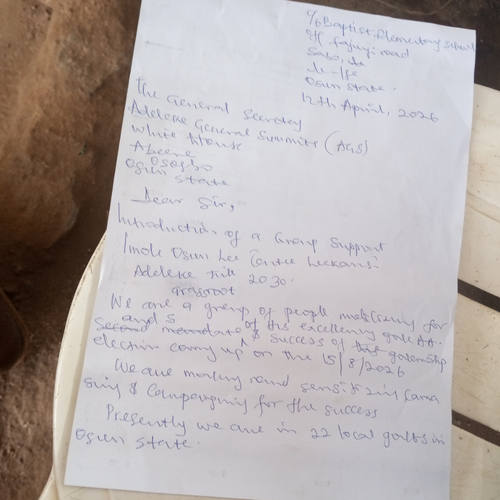 c/o Baptist Elementary School
Off Fajuyi road
Sabo, Ile
Ile-Ife
Osun State.
12th April, 2026
The General Secretary
Adeleke General Summits (AGS)
White House
Abeere
Osogbo
Osun State
Dear Sir,
Introduction of a Group Support
Imole Osun Lee Centre
Adeleke till 2030.
grassroot
We are a group of people mobilizing for
and S
Second of his excellency & success of his
election coming up on the 15/8/2026
We are moving round
& Campaigning for the success
Presently we are in 22 local govts in
Osun State.